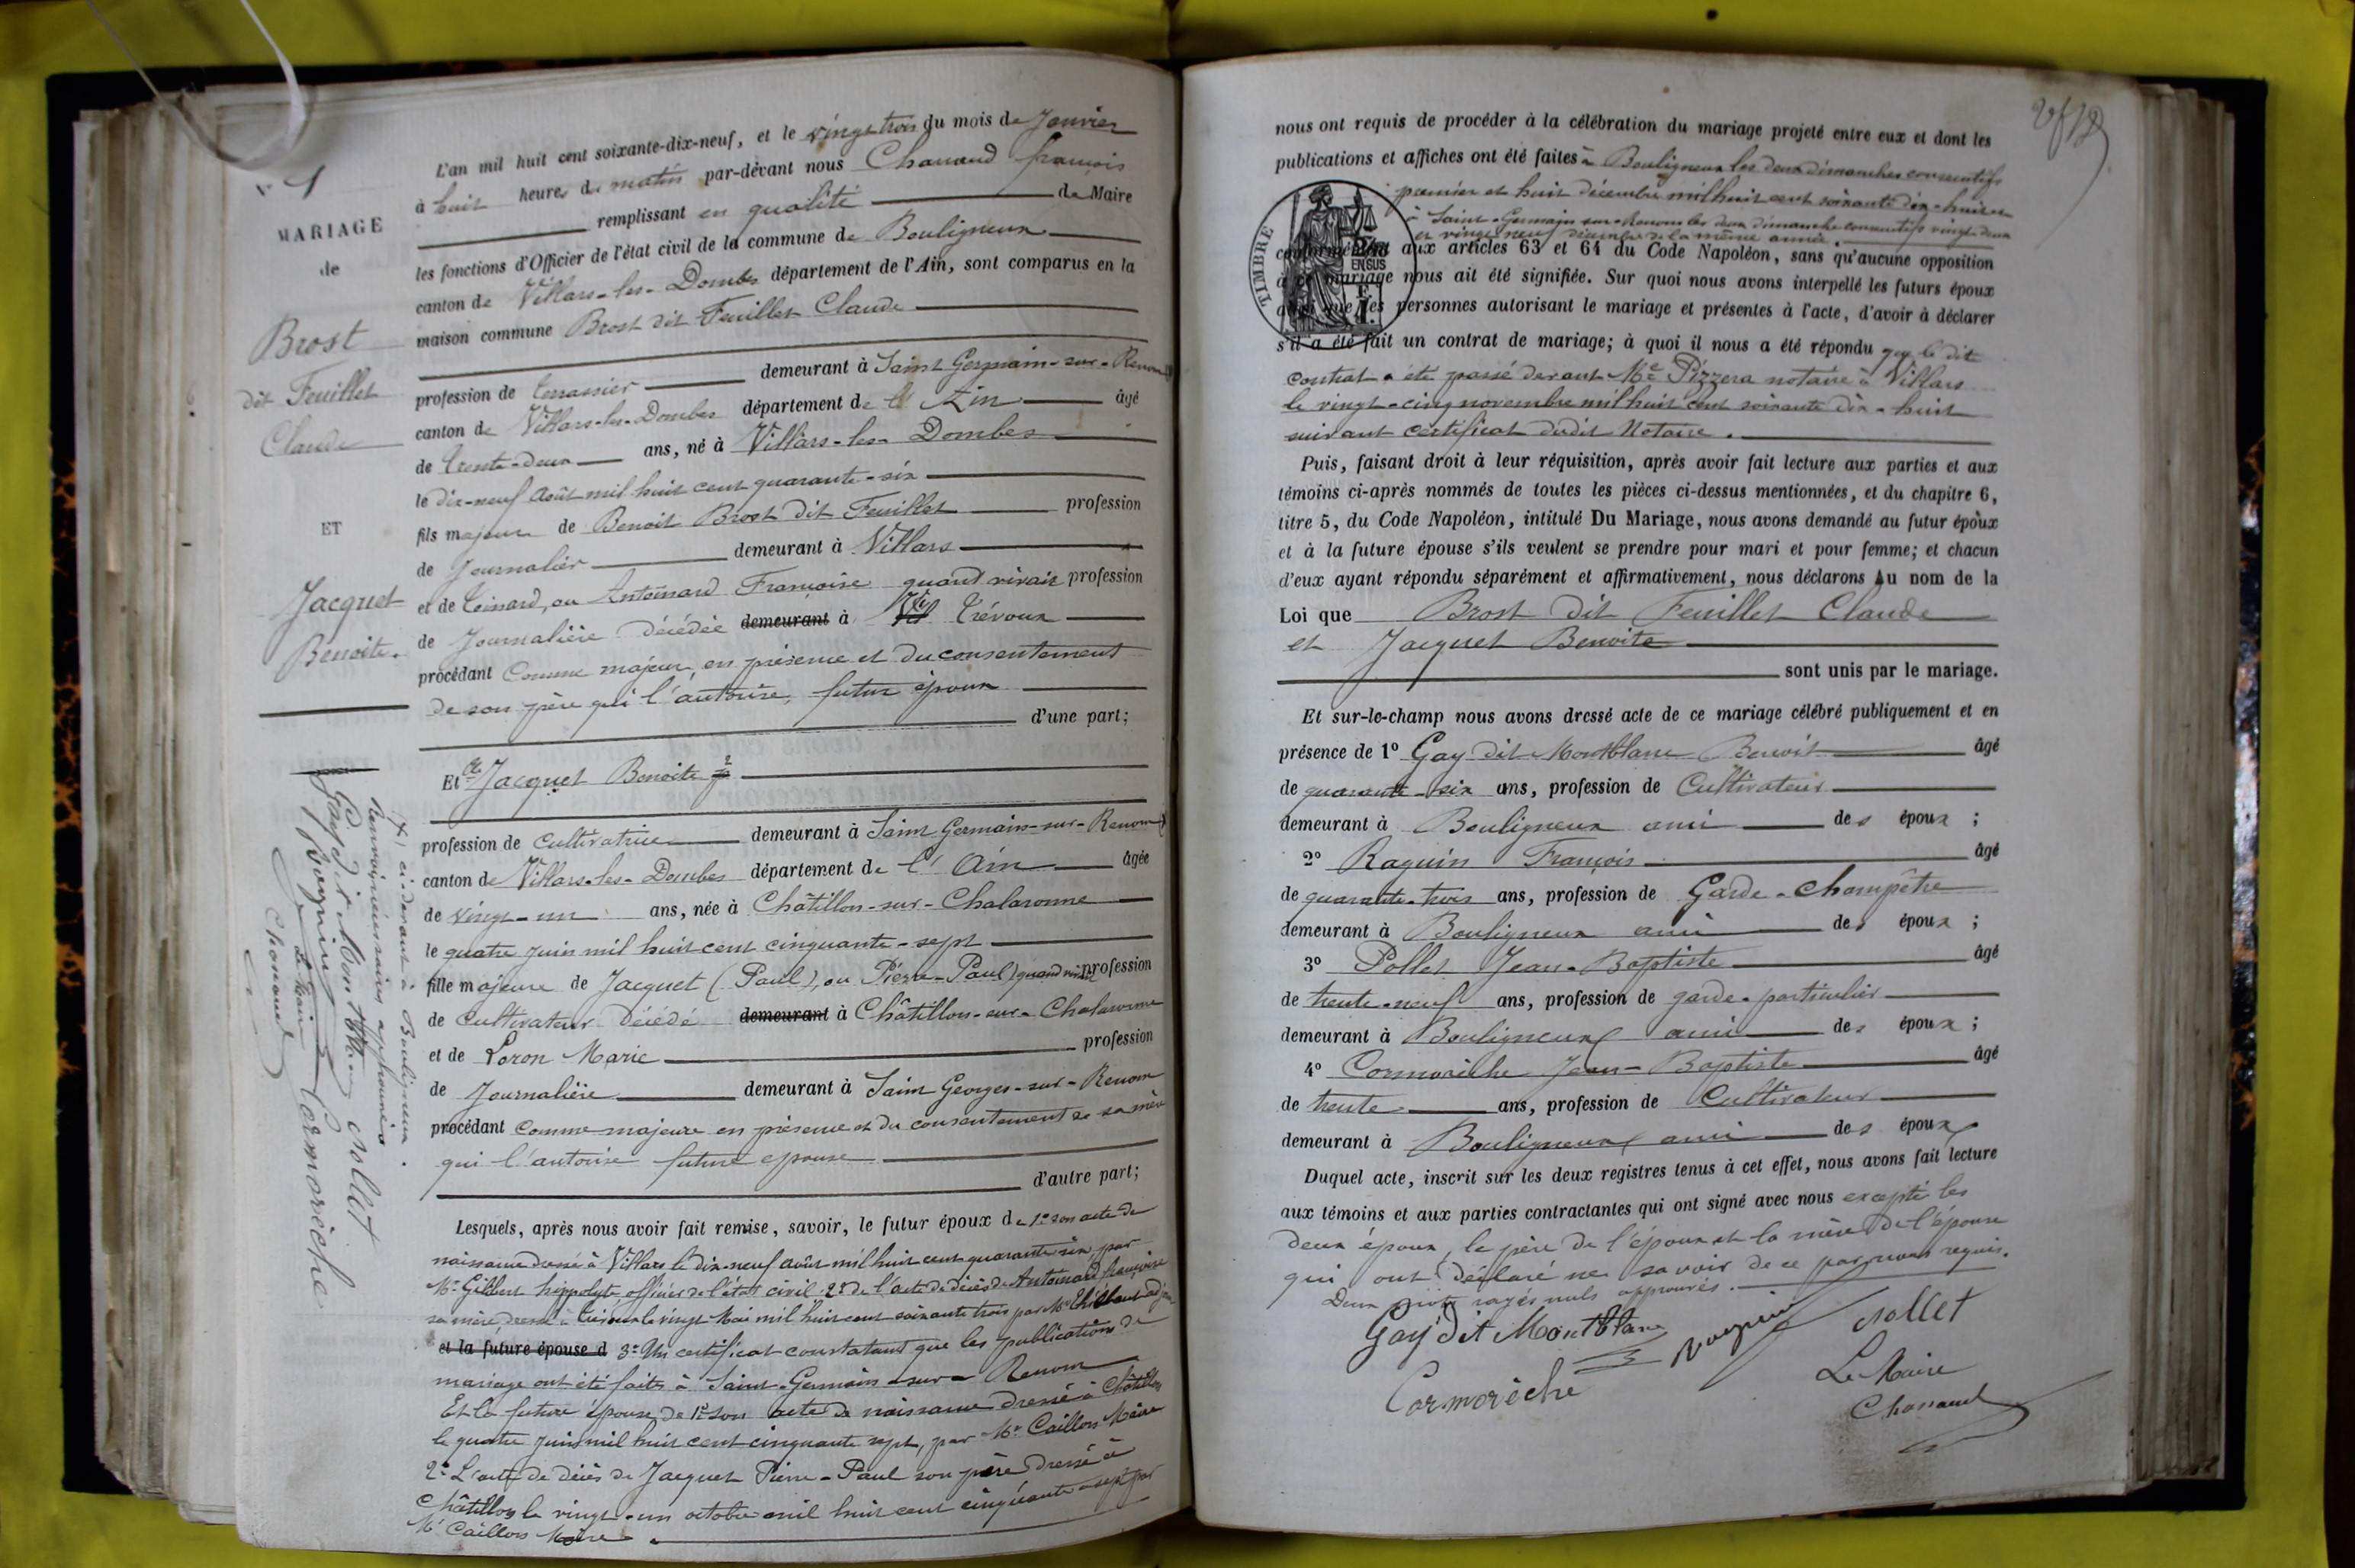 N 1
MARIAGE
de
Brost
dit Feuillet
Claude
ET
Jacquet
Benoite.
L'an mil huit cent soixante-dix-neuf, et le vingt trois du mois de Janvier
à huit heures du matin par-devant nous Chanaud françois
remplissant en qualité de Maire
les fonctions d'Officier de l'état civil de la commune de Bouligneux
canton de Villars-les-Dombes département de l'Ain, sont comparus en la
maison commune Brost dit Feuillet Claude
profession de terrassier demeurant à Saint Germain-sur-Renom
canton de Villars-les-Dombes département de l'Ain âgé
de trente-deux ans, né à Villars-les-Dombes
le dix-neuf Août mil huit cent quarante-six
fils majeur de Benoit Brost dit Feuillet profession
de Journalier demeurant à Villars
et de Toinard, ou Antoinard Françoise quand vivait profession
de Journalière décédée demeurant à Trévoux
procédant comme majeur, en présence et du consentement
de son père qui l'autorise, futur époux
d'une part;
Et Jacquet Benoite
profession de cultivatrice demeurant à Saint Germain-sur-Renom
canton de Villars-les-Dombes département de l'Ain âgée
de vingt-un ans, née à Châtillon-sur-Chalaronne
le quatre juin mil huit cent cinquante-sept
fille majeure de Jacquet (Paul), ou Pierre-Paul) quand vivait profession
de cultivateur décédé demeurant à Châtillon-sur-Chalaronne
et de Loron Marie profession
de Journalière demeurant à Saint Georges-sur-Renom
procédant comme majeure en présence et du consentement de sa mère
qui l'autorise future epouse
d'autre part;
Lesquels, après nous avoir fait remise, savoir, le futur époux de 1º son acte de
naissance dressé à Villars le dix-neuf Août mil huit cent quarante six, par
Mr Gilbert hippolyte officier de l'état civil 2º de l'acte de décès de Antoinard françoise
sa mère, dressé à Trévoux le vingt Mai mil huit cent soixante trois par Mr Thibaut adj
et la future épouse d 3º Un certificat constatant que les publications de
mariage ont été faites à Saint-Germain-sur-Renom
Et la future épouse, de 1º son acte de naissance dressé à Châtillon
le quatre juin mil huit cent cinquante sept, par Mr Caillon Maire
2º L'acte de décès de Jacquet Pierre-Paul son père dressé à
Châtillon le vingt-un octobre mil huit cent cinquante-sept par
Mr Caillon Maire.
ci-devant à Bouligneux.
Gay dit Montblanc
Raquin
Pollet
Cormorèche
Le Maire
Chanaud
nous ont requis de procéder à la célébration du mariage projeté entre eux et dont les
publications et affiches ont été faites à Bouligneux les deux dimanches consecutifs
premier et huit décembre mil huit cent soixante dix-huit et
à Saint-Germain-sur-Renom les deux dimanche consecutifs vingt-deux
et vingt neuf décembre de la même année.
TIMBRE
EN SUS
conformément aux articles 63 et 64 du Code Napoléon, sans qu'aucune opposition
à ce mariage nous ait été signifiée. Sur quoi nous avons interpellé les futurs époux
ainsi que les personnes autorisant le mariage et présentes à l'acte, d'avoir à déclarer
s'il a été fait un contrat de mariage; à quoi il nous a été répondu que le dit
contrat a été passé devant Me Pizzera notaire à Villars
le vingt-cinq novembre mil huit cent soixante dix-huit
suivant certificat dudit Notaire.
Puis, faisant droit à leur réquisition, après avoir fait lecture aux parties et aux
témoins ci-après nommés de toutes les pièces ci-dessus mentionnées, et du chapitre 6,
titre 5, du Code Napoléon, intitulé Du Mariage, nous avons demandé au futur époux
et à la future épouse s'ils veulent se prendre pour mari et pour femme; et chacun
d'eux ayant répondu séparément et affirmativement, nous déclarons Au nom de la
Loi que Brost dit Feuillet Claude
et Jacquet Benoite
sont unis par le mariage.
Et sur-le-champ nous avons dressé acte de ce mariage célébré publiquement et en
présence de 1º Gay dit Montblanc Benoit âgé
de quarante-six ans, profession de Cultivateur
demeurant à Bouligneux ami des époux;
2º Raquin François âgé
de quarante-trois ans, profession de Garde-Champêtre
demeurant à Bouligneux ami des époux;
3º Pollet Jean-Baptiste âgé
de trente-neuf ans, profession de garde-particulier
demeurant à Bouligneux ami des époux;
4º Cormorèche Jean-Baptiste âgé
de trente ans, profession de Cultivateur
demeurant à Bouligneux ami des époux
Duquel acte, inscrit sur les deux registres tenus à cet effet, nous avons fait lecture
aux témoins et aux parties contractantes qui ont signé avec nous excepté les
deux époux, le père de l'époux et la mère de l'épouse
qui ont déclaré ne savoir de ce par nous requis.
Deux mots rayés nuls approuvés.
Gay dit Montblanc
Raquin
Pollet
Cormorèche
Le Maire
Chanaud